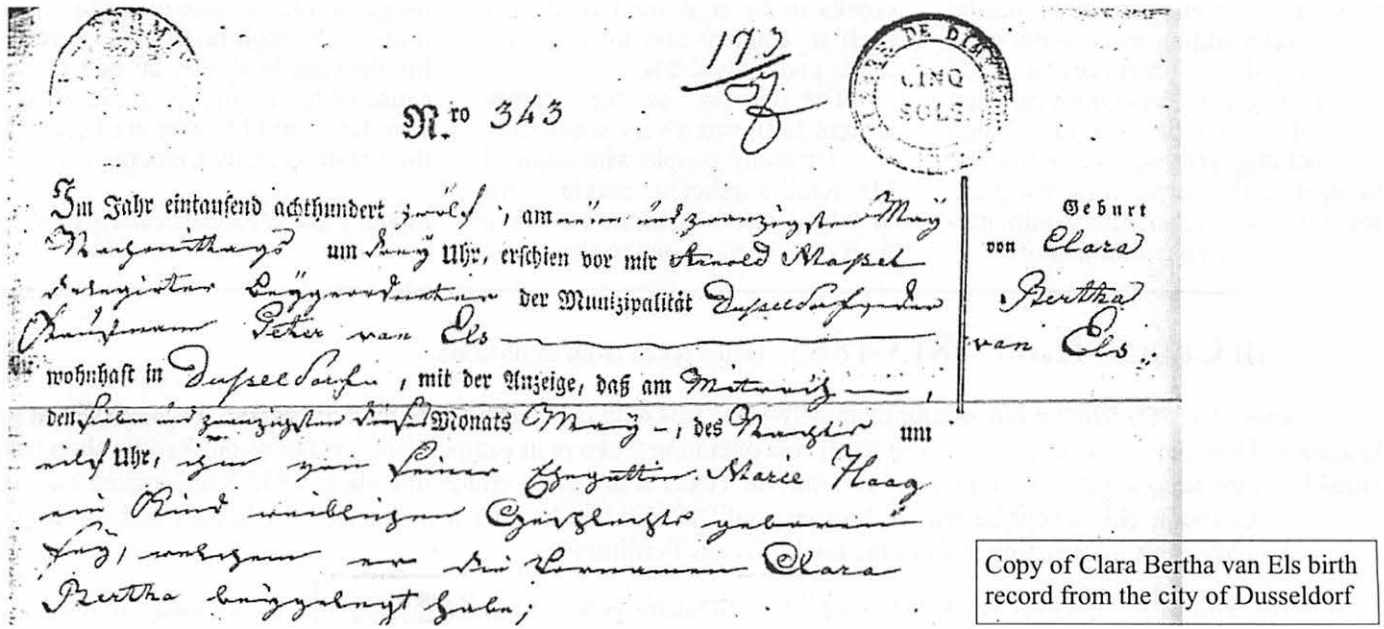 173
N.ro 343
CINQ
SOLS.
Im Jahr eintausend achthundert zwölf, am ein und zwanzigsten May
Nachmittags um drey Uhr, erschien vor mir Arnold
delegirter Beygeordneter der Munizipalität Dusseldorf der
Kaufmann Peter van Els
wohnhaft in Dusseldorf, mit der Anzeige, daß am
den und zwanzigsten dieses Monats May, des um
eilf Uhr, ihm von seiner Ehegattin Marie Haag
ein Kind weiblichen Geschlechts geboren
sey, welchem er die Vornamen Clara
Bertha beygelegt habe;
Geburt
von Clara
Bertha
van Els.
Copy of Clara Bertha van Els birth
record from the city of Dusseldorf